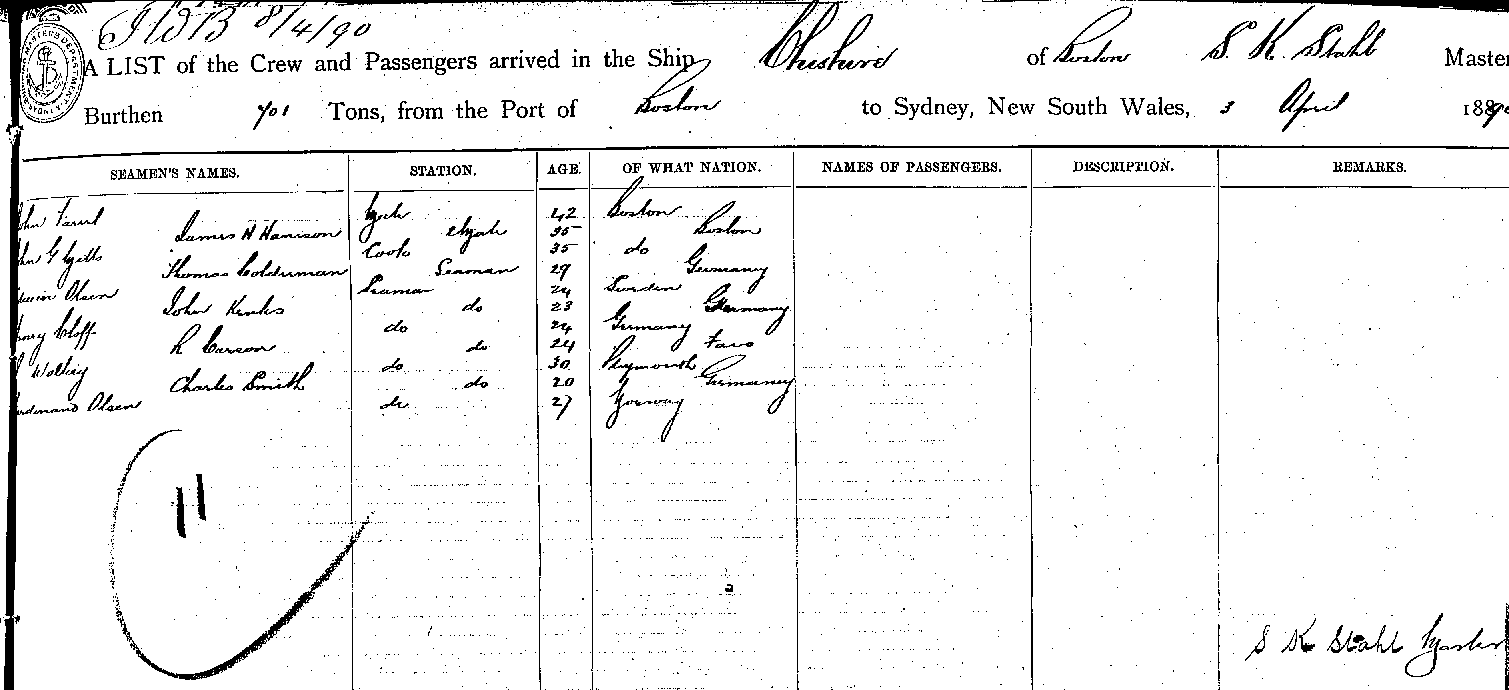 8/4/90
A LIST of the Crew and Passengers arrived in the Ship Cheshire of Boston S. K. Stahl Master
Burthen 701 Tons, from the Port of Boston to Sydney, New South Wales, 3 April 1890
SEAMEN'S NAMES. STATION. AGE. OF WHAT NATION. NAMES OF PASSENGERS. DESCRIPTION. REMARKS.
42 Boston
James H Harrison 35 Boston
Cook 35 do
Thomas Seaman 29 Germany
Olsen Seaman 24 Sweden
John do 23 Germany
do 24 Germany
R Carson do 24
do 30 Plymouth
Charles Smith do 20 Germaney
Olsen do 27 Norway
11
S K Stahl Master